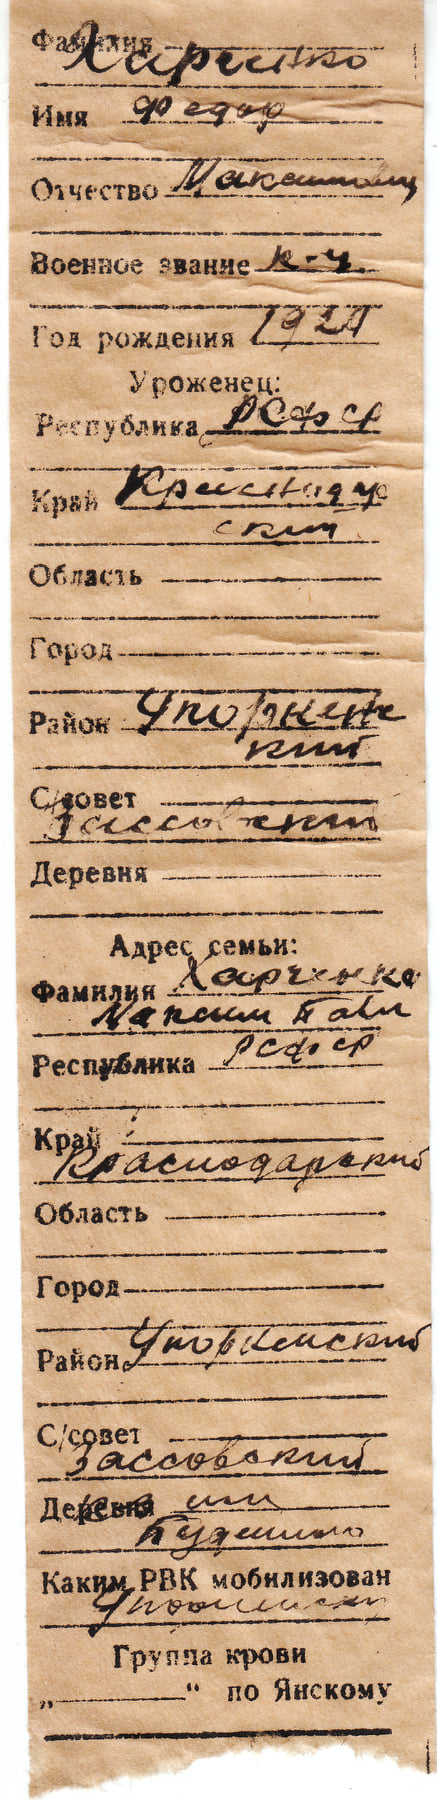 Фамилия Харченко
Имя Федор
Отчество Максимовиц
Военное звание к-ц
Год рождения 192
Уроженец:
Республика РСФСР
Край Краснодар
ский
Область
Город
Район Упорненс
кий
С/совет
Зассовский
Деревня
Адрес семьи:
Фамилия Харченко
Максим Павл
Республика РСФСР
Край
Краснодарский
Область
Город
Район Упорненский
С/совет
Зассовский
Деревня им
Буденного
Каким РВК мобилизован
Упорненским
Группа крови
„ “ по Янскому